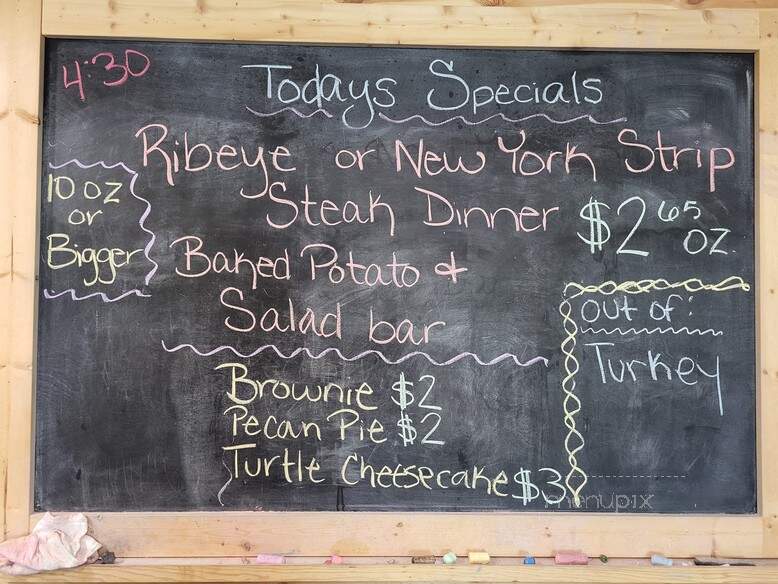 4:30
Todays Specials
Ribeye or New York Strip
Steak Dinner $2 65 oz.
10 oz
or
Bigger
Baked Potato &
Salad bar
Brownie $2
Pecan Pie $2
Turtle Cheesecake $3
out of:
Turkey
menupix